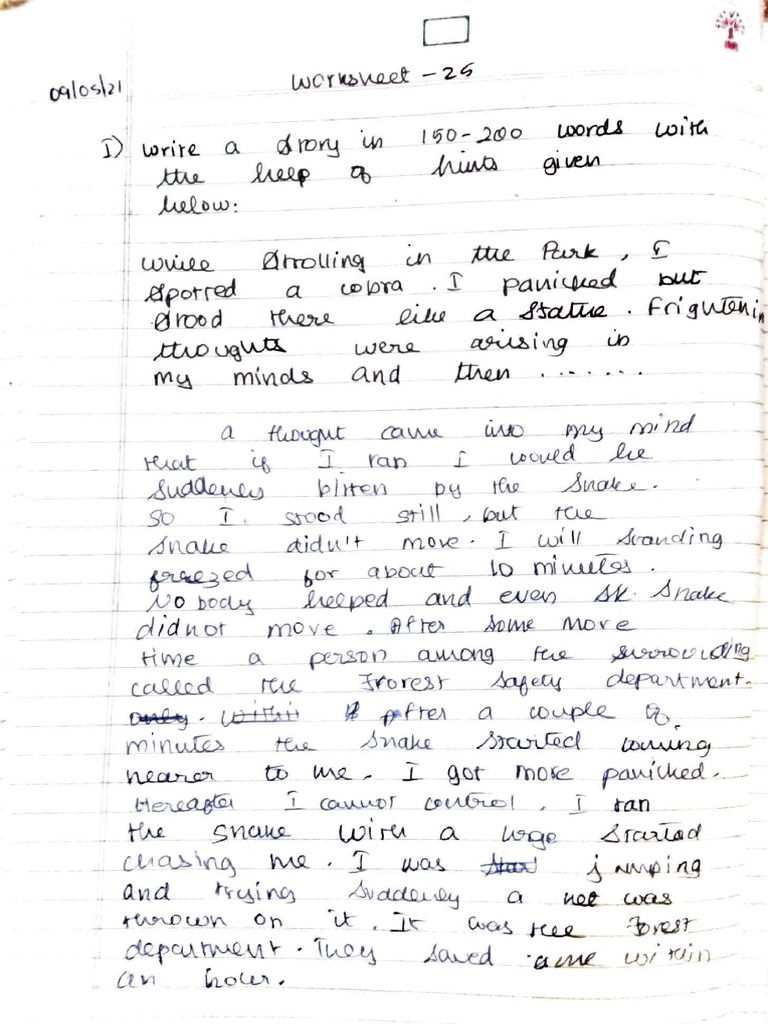 Worksheet - 25
09/05/21
I) write a story in 150-200 words with
the help of hints given
below:
while strolling in the Park, I
spotted a cobra. I panicked but
stood there like a statue. Frightenin
thoughts were arising in
my minds and then .......
a thought came into my mind
that if I ran I would be
suddenly bitten by the snake.
So I stood still, but the
snake didn't move. I will standing
freezed for about 10 minutes.
No body helped and even sk. snake
did not move. After some more
time a person among the surrounding
called the Forest safety department.
only. within After a couple of
minutes the snake started coming
nearer to me. I got more panicked.
Hereafter I cannot control. I ran
the snake with a urge started
chasing me. I was jumping
and trying suddenly a net was
thrown on it. It was the Forest
department. They saved me within
an hour.